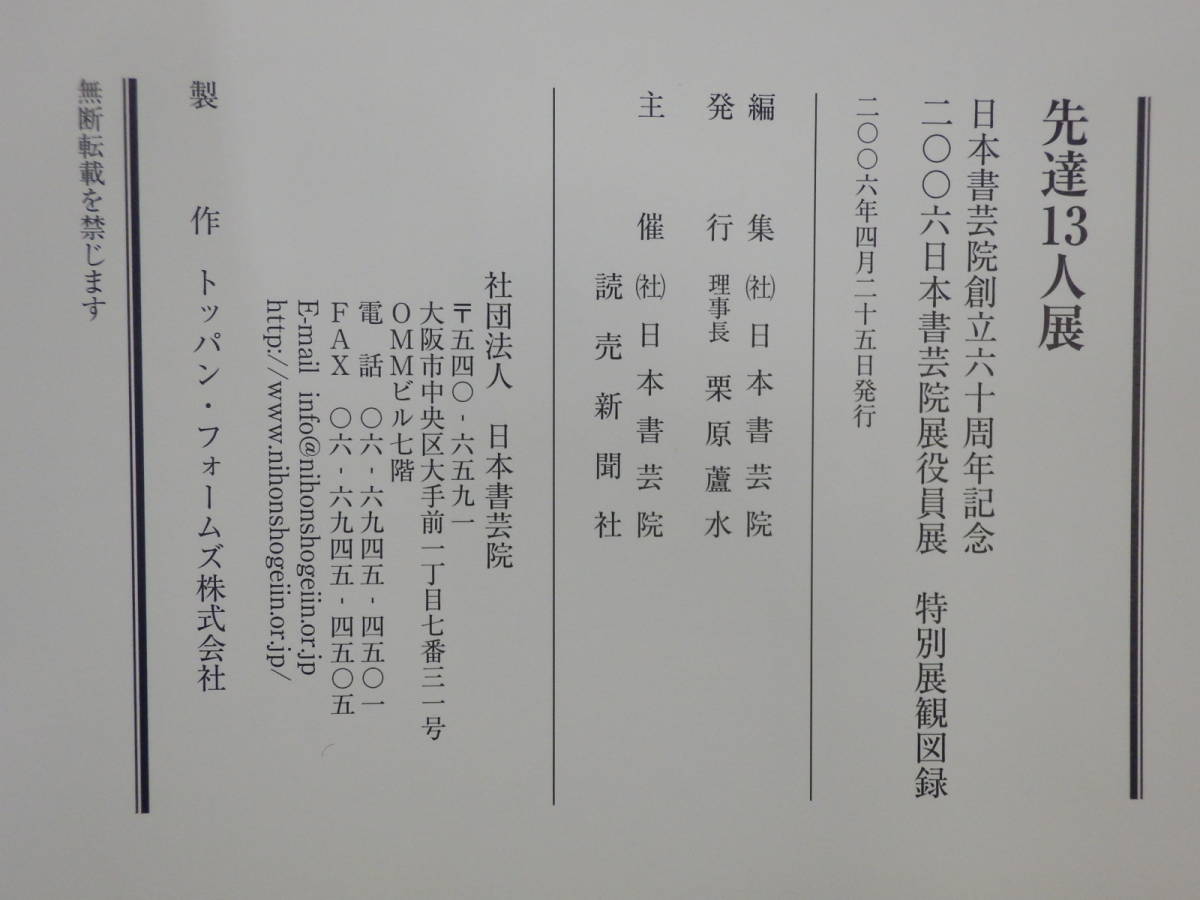 先達13人展
日本書芸院創立六十周年記念
二〇〇六日本書芸院展役員展　特別展観図録
二〇〇六年四月二十五日発行
編　集　㈳日本書芸院
発　行　理事長　栗原蘆水
主　催　㈳日本書芸院
読売新聞社
社団法人　日本書芸院
〒五四〇-六五九一
大阪市中央区大手前一丁目七番三一号
OMMビル七階
電　話　〇六-六九四五-四五〇一
FAX　〇六-六九四五-四五〇五
E-mail　info@nihonshogeiin.or.jp
http://www.nihonshogeiin.or.jp/
製　作　トッパン・フォームズ株式会社
無断転載を禁じます